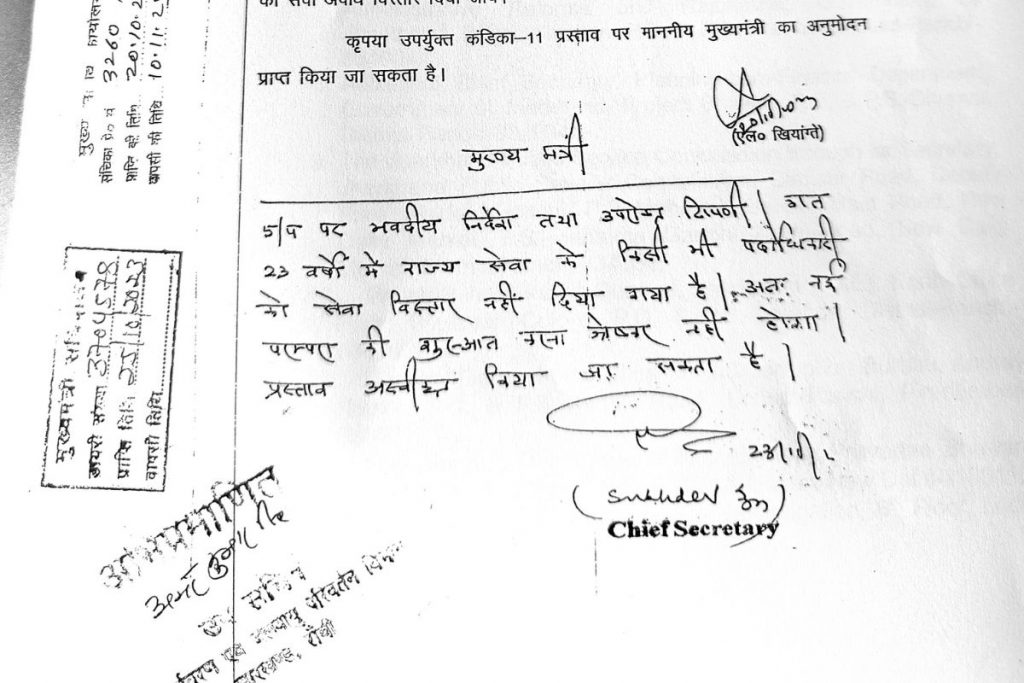 की सेवा अवधि विस्तार दिया जाय।
कृपया उपर्युक्त कंडिका–11 प्रस्ताव पर माननीय मुख्यमंत्री का अनुमोदन
प्राप्त किया जा सकता है।
(एल० खियांग्ते)
मुख्य मंत्री
5/प पर भवदीय निर्देश तथा उपरोक्त टिप्पणी। गत
23 वर्षों में राज्य सेवा के किसी भी पदाधिकारी
को सेवा विस्तार नहीं दिया गया है। अतः नई
परम्परा की शुरुआत करना श्रेष्कर नहीं होगा।
प्रस्ताव अस्वीकृत किया जा सकता है।
(Sukhdev Singh)
Chief Secretary
संचिका प्रे० सं 3260
प्राप्ति की तिथि 20.10.2
वापसी की तिथि 10.11.2
मुख्यमंत्री सचिवालय
डायरी संख्या
प्राप्ति तिथि 25/10/2023
वापसी तिथि
अभिप्रमाणित
सचिव
एवं जलवायु परिवर्तन विभाग
झारखण्ड, राँची